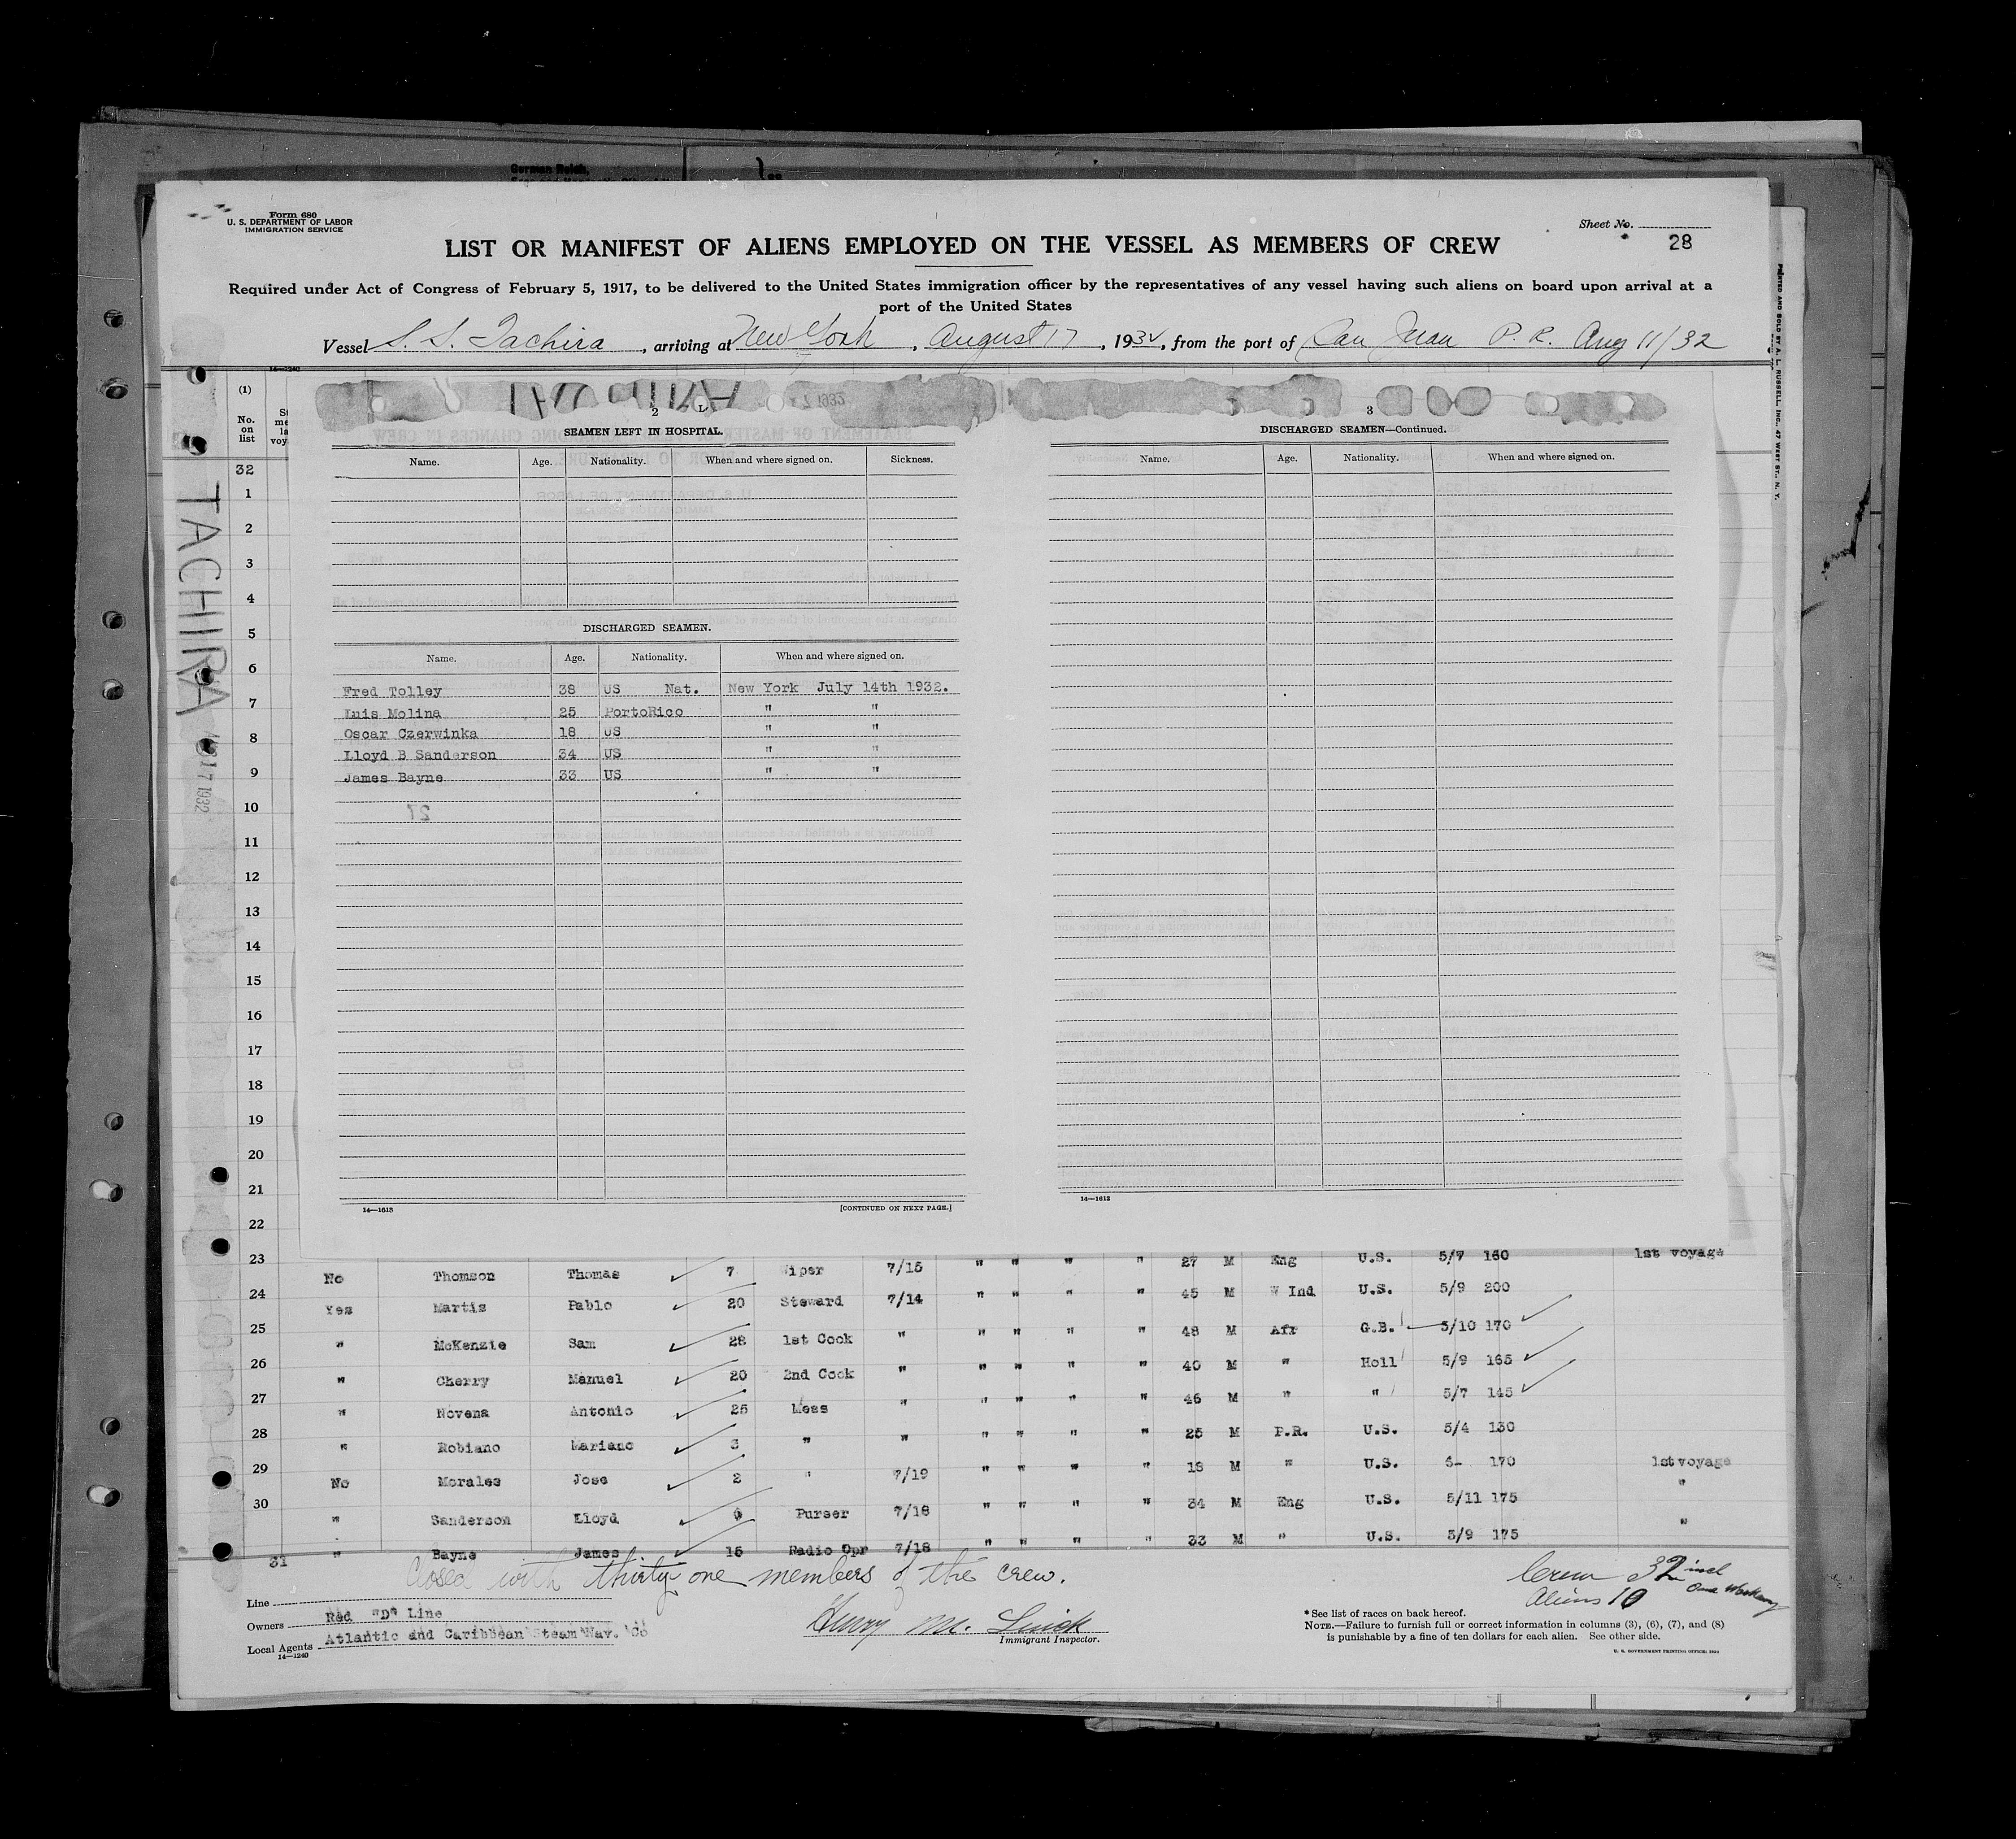 German Reich,
Form 680
U. S. DEPARTMENT OF LABOR
IMMIGRATION SERVICE
Sheet No.
28
LIST OR MANIFEST OF ALIENS EMPLOYED ON THE VESSEL AS MEMBERS OF CREW
Required under Act of Congress of February 5, 1917, to be delivered to the United States immigration officer by the representatives of any vessel having such aliens on board upon arrival at a
port of the United States
Vessel S. S. Tachira, arriving at New York, August 17, 1932, from the port of San Juan P. R. Aug 11/32
PRINTED AND SOLD BY A. L. RUSSELL, INC., 47 WEST ST., N. Y.
14—1240
(1)
No. on list
32
TACHIRA
17 1932
2
SEAMEN LEFT IN HOSPITAL.
Name. Age. Nationality. When and where signed on. Sickness.
DISCHARGED SEAMEN.
Name. Age. Nationality. When and where signed on.
Fred Tolley 38 US Nat. New York July 14th 1932.
Luis Molina 25 PortoRico " "
Oscar Czerwinka 18 US " "
Lloyd B Sanderson 34 US " "
James Bayne 33 US " "
14—1613
[CONTINUED ON NEXT PAGE.]
3
DISCHARGED SEAMEN—Continued.
Name. Age. Nationality. When and where signed on.
14—1613
1
2
3
4
5
6
7
8
9
10
11
12
13
14
15
16
17
18
19
20
21
22
23 No Thomson Thomas 7 Wiper 7/15 " " " " 27 M Eng U.S. 5/7 160 1st voyage
24 Yes Martis Pablo 20 Steward 7/14 " " " " 45 M W Ind U.S. 5/9 200
25 " McKenzie Sam 28 1st Cook " " " " " 48 M Afr G.B. 5/10 170
26 " Cherry Manuel 20 2nd Cook " " " " " 40 M " Holl 5/9 165
27 " Novena Antonio 25 Mess " " " " " 46 M " " 5/7 145
28 " Robiano Mariano 3 " " " " " " 25 M P.R. U.S. 5/4 130
29 No Morales Jose 2 " 7/19 " " " " 18 M " U.S. 6- 170 1st voyage
30 " Sanderson Lloyd 6 Purser 7/18 " " " " 34 M Eng U.S. 5/11 175 "
31 " Bayne James 15 Radio Opr 7/18 " " " " 33 M " U.S. 5/9 175 "
Closed with thirty one members of the crew.
Crew 32 incl
One Workaway
Aliens 10
Line
Owners Red "D" Line
Local Agents Atlantic and Caribbean Steam Nav. Co
14—1240
Henry
Immigrant Inspector.
* See list of races on back hereof.
NOTE.—Failure to furnish full or correct information in columns (3), (6), (7), and (8)
is punishable by a fine of ten dollars for each alien. See other side.
U. S. GOVERNMENT PRINTING OFFICE